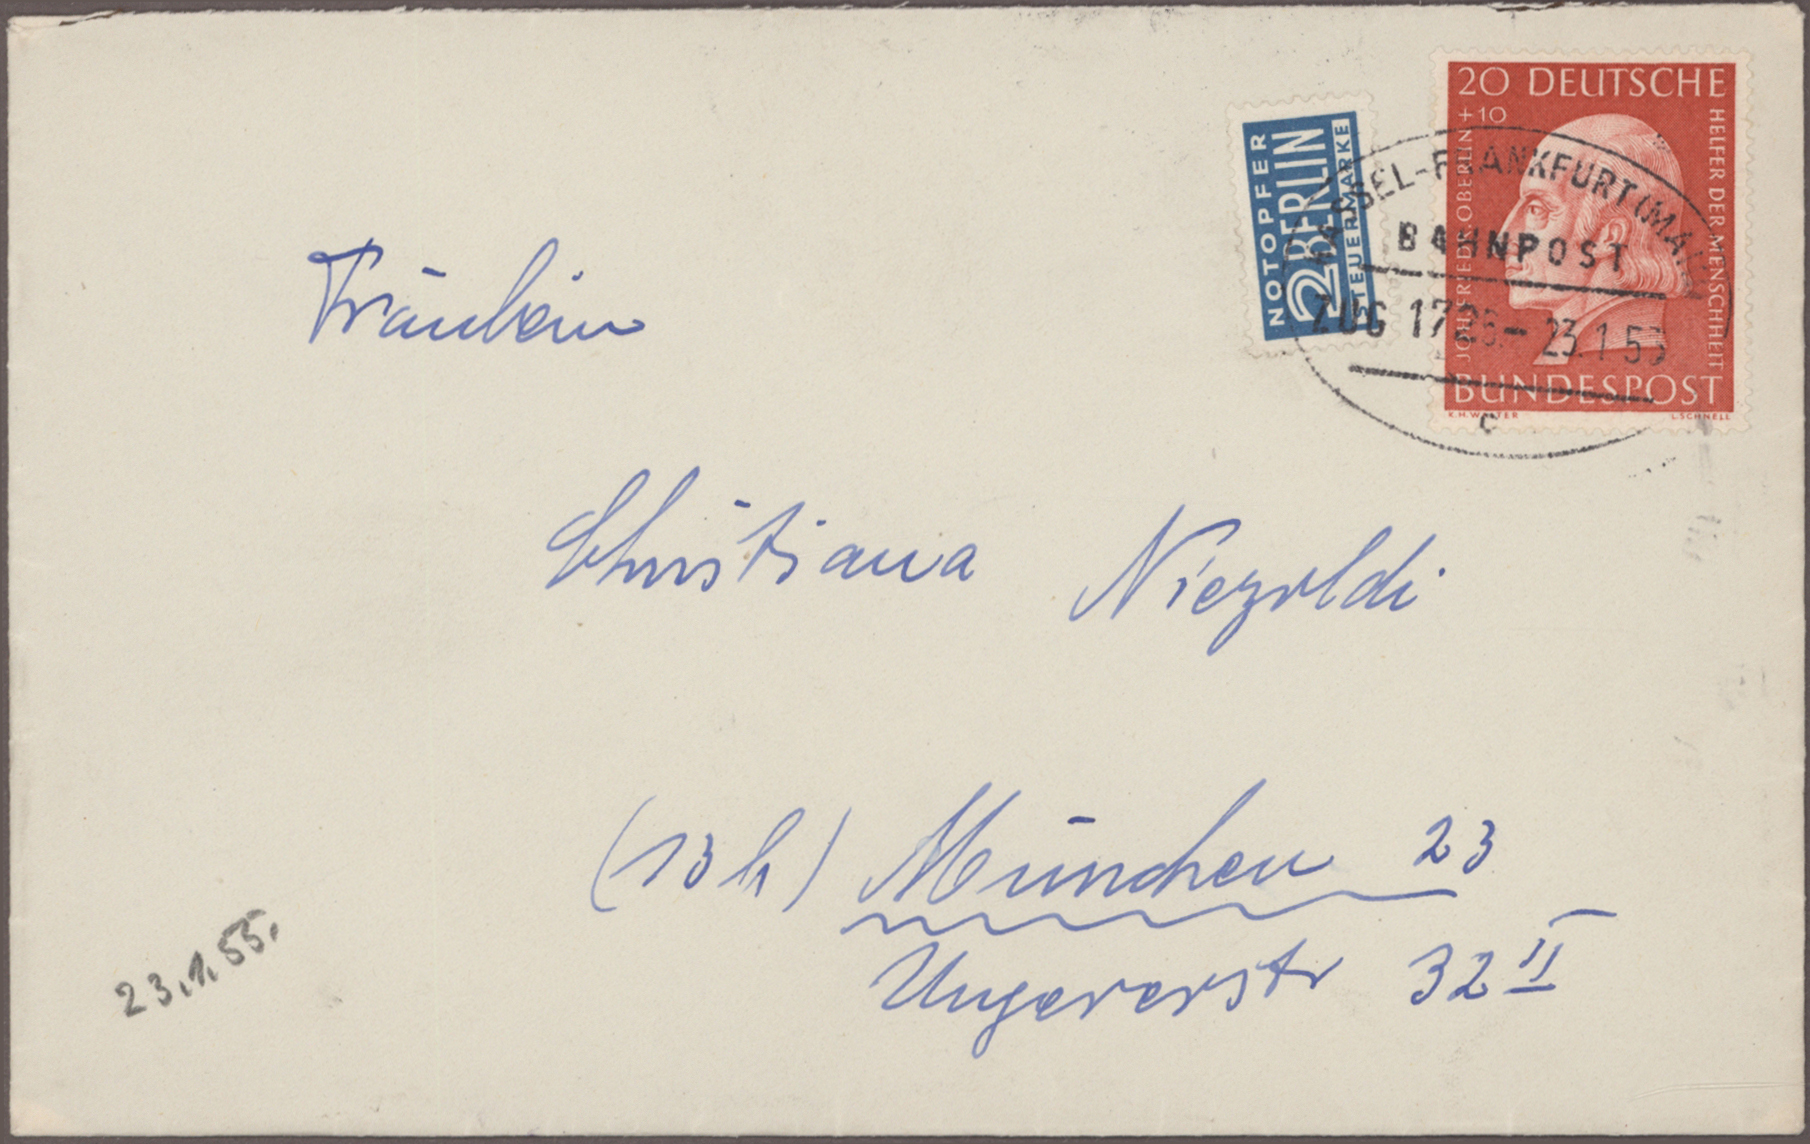 20 DEUTSCHE
+10
JOH. FRIEDR. OBERLIN
HELFER DER MENSCHHEIT
BUNDESPOST
K.H.WALTER L.SCHNELL
NOTOPFER
2 BERLIN
STEUERMARKE
KASSEL-FRANKFURT (MAIN)
BAHNPOST
ZUG 1726 - 23.1.55
c
Fräulein
Christiana Niezoldi
(13 b) München 23
Ungererstr 32 II
23.1.55.